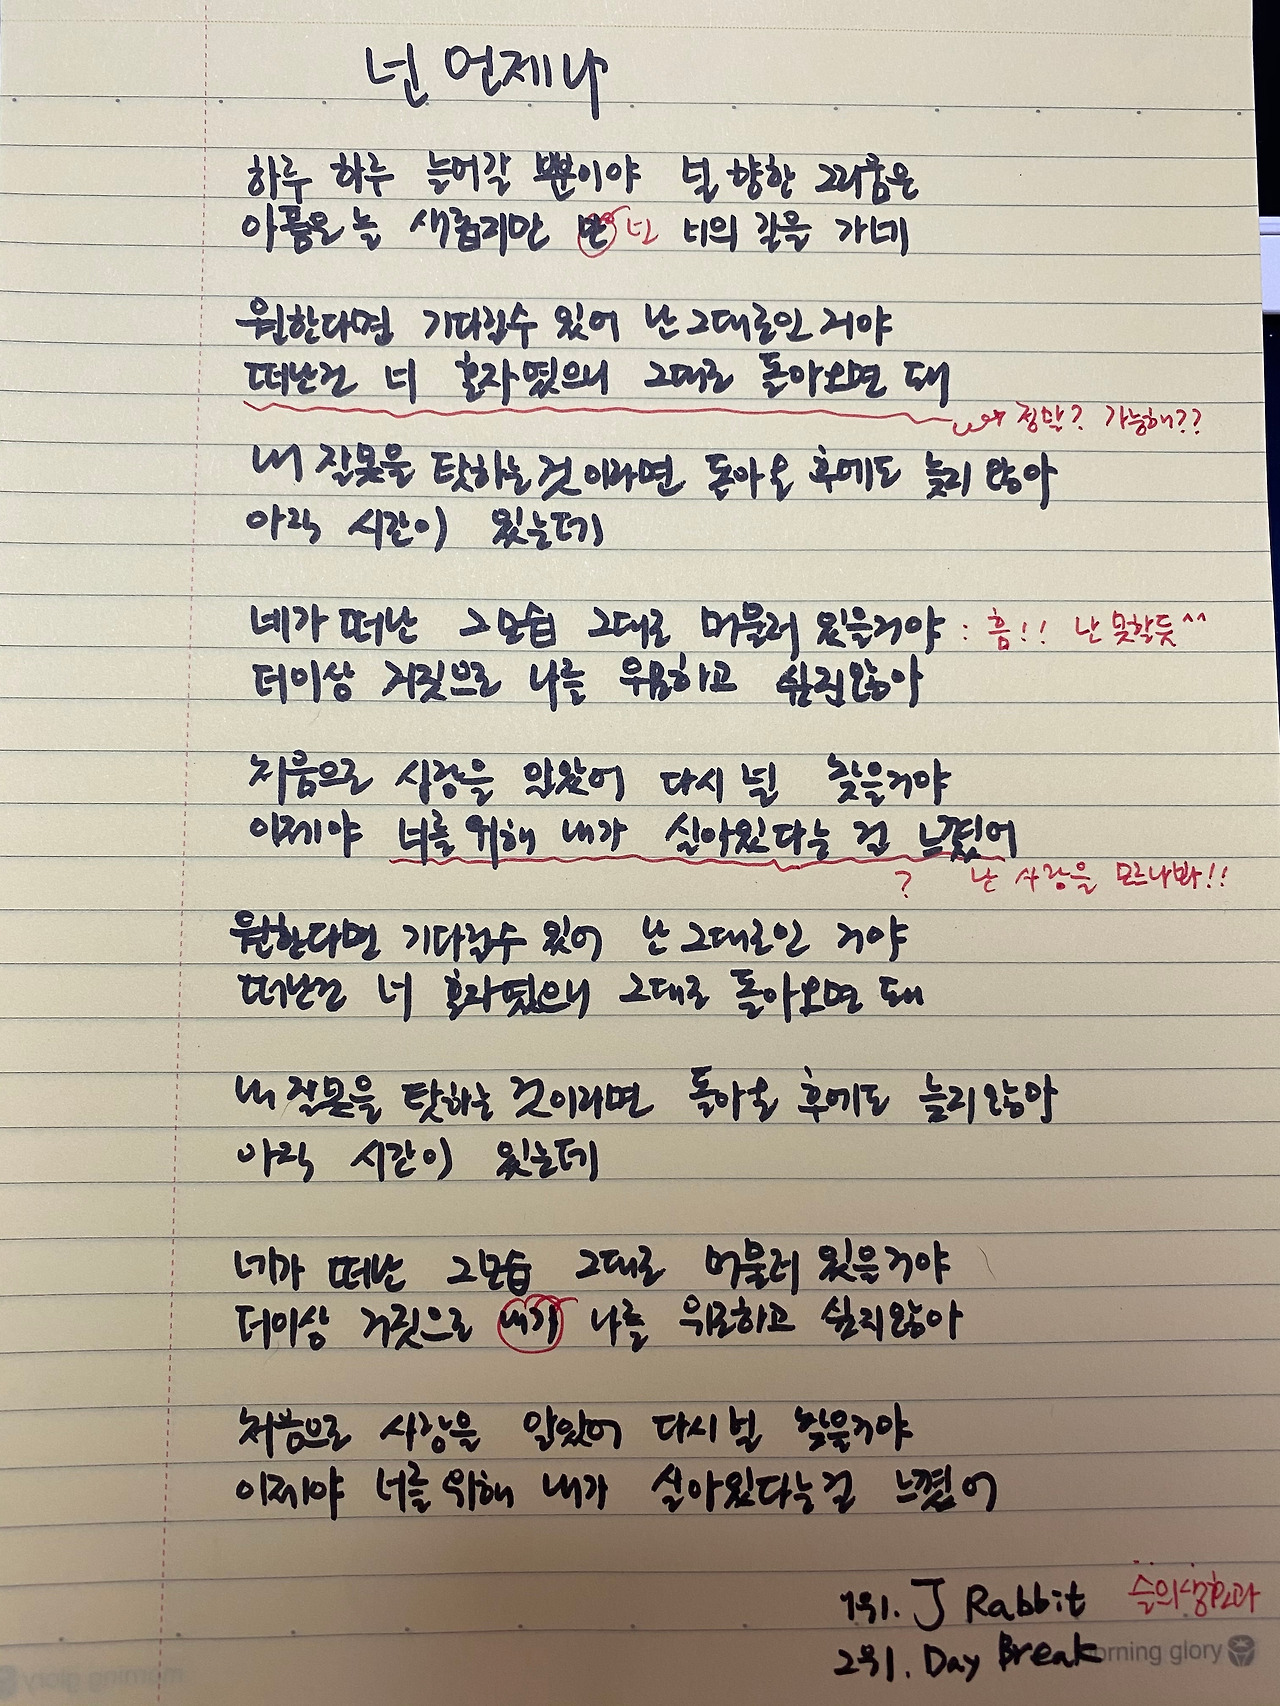 넌 언제나
하루 하루 늘어갈 뿐이야 널 향한 그리움은
아픔은 늘 새롭지만 넌 너의 길을 가네
원한다면 기다릴수 있어 난 그대로인 거야
떠난건 너 혼자였으니 그대로 돌아오면 돼
정말? 가능해??
내 잘못을 탓하는 것 이라면 돌아올 후에도 늦지 않아
아직 시간이 있는데
네가 떠난 그모습 그대로 머물러 있을거야 : 흠!! 난 못할듯^^
더이상 거짓으로 나를 위로하고 싶진않아
처음으로 사랑을 알았어 다시 널 찾을거야
이제야 너를 위해 내가 살아있다는 걸 느꼈어
? 난 사랑을 모르나봐!!
원한다면 기다릴수 있어 난 그대로인 거야
떠난건 너 혼자였으니 그대로 돌아오면 돼
내 잘못을 탓하는 것이라면 돌아올 후에도 늦지않아
아직 시간이 있는데
네가 떠난 그모습 그대로 머물러 있을거야
더이상 거짓으로 내가 나를 위로하고 싶지않아
처음으로 사랑을 알았어 다시 널 찾을거야
이제야 너를 위해 내가 살아있다는걸 느꼈어
1위. J Rabbit
2위. Day Break
morning glory